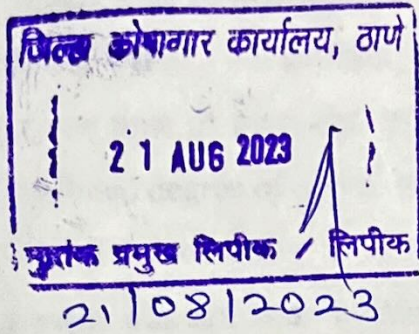 जिल्हा कोषागार कार्यालय, ठाणे
21 AUG 2023
प्रमुख लिपीक / लिपीक
21/08/2023